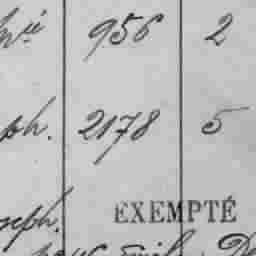 956 2
ph. 2178 5
seph. EXEMPTÉ